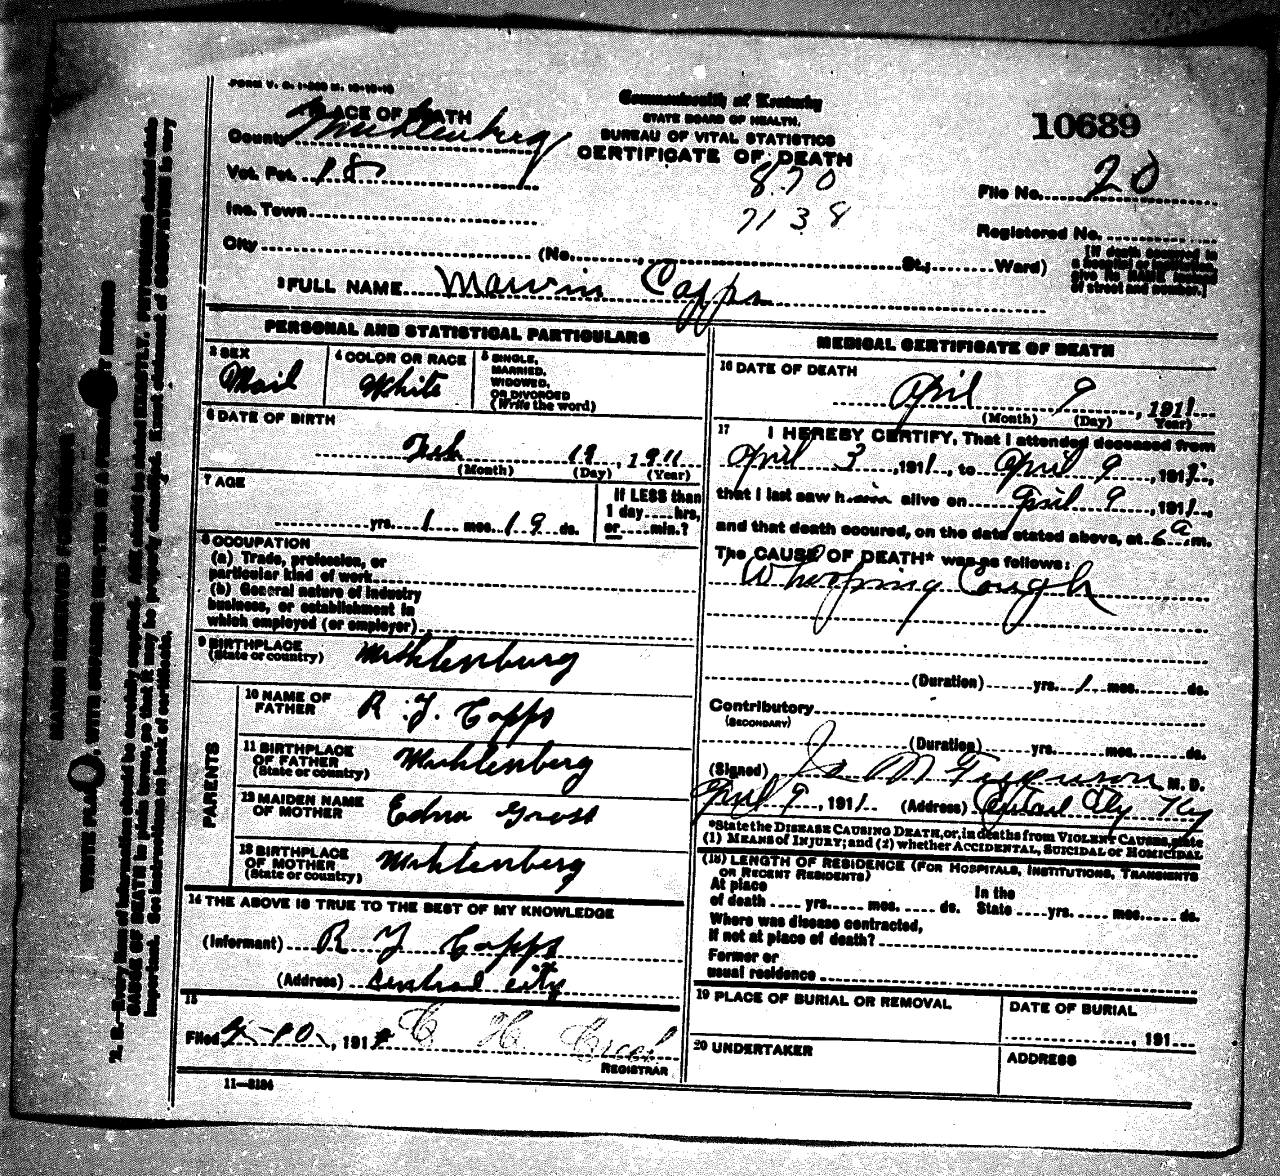 FORM V. S. 1-
PLACE OF DEATH
County Muhlenberg
Vot. Pct. 18
Inc. Town
City (No. , St.; Ward)
Commonwealth of Kentucky
STATE BOARD OF HEALTH.
BUREAU OF VITAL STATISTICS
CERTIFICATE OF DEATH
870
7138
10689
File No. 20
Registered No.
[If death occurred in
a hospital or institution
give its NAME instead
of street and number.]
2 FULL NAME Marvin Capps
PERSONAL AND STATISTICAL PARTICULARS
3 SEX
Mail
4 COLOR OR RACE
White
5 SINGLE,
MARRIED,
WIDOWED,
OR DIVORCED
(Write the word)
6 DATE OF BIRTH
Feb 19, 1911
(Month) (Day) (Year)
7 AGE
yrs. 1 mos. 19 ds.
If LESS than
1 day hrs.
or min.?
8 OCCUPATION
(a) Trade, profession, or
particular kind of work
(b) General nature of industry
business, or establishment in
which employed (or employer)
9 BIRTHPLACE
(State or country) Muhlenburg
PARENTS
10 NAME OF
FATHER R. J. Capps
11 BIRTHPLACE
OF FATHER
(State or country) Muhlenberg
12 MAIDEN NAME
OF MOTHER Edna Gross
13 BIRTHPLACE
OF MOTHER
(State or country) Muhlenberg
14 THE ABOVE IS TRUE TO THE BEST OF MY KNOWLEDGE
(Informant) R J Capps
(Address) Central city
15
Filed 4-10, 191 C. H.
REGISTRAR
11-3184
MEDICAL CERTIFICATE OF DEATH
16 DATE OF DEATH
April 9, 1911
(Month) (Day) Year)
17 I HEREBY CERTIFY, That I attended deceased from
April 3, 1911, to April 9, 1911,
that I last saw him alive on April 9, 1911,
and that death occured, on the date stated above, at 6 a.m.
The CAUSE OF DEATH* was as follows:
Whooping Cough
(Duration) yrs. 1 mos. ds.
Contributory
(SECONDARY)
(Duration) yrs. mos. ds.
(Signed) M Ferguson M. D.
April 9, 1911 (Address) Central City Ky
*State the DISEASE CAUSING DEATH, or, in deaths from VIOLENT CAUSES, state
(1) MEANS of INJURY; and (2) whether ACCIDENTAL, SUICIDAL or HOMICIDAL
(18) LENGTH OF RESIDENCE (FOR HOSPITALS, INSTITUTIONS, TRANSIENTS
OR RECENT RESIDENTS)
At place
of death yrs. mos. ds.
In the
State yrs. mos. ds.
Where was disease contracted,
If not at place of death?
Former or
usual residence
19 PLACE OF BURIAL OR REMOVAL
DATE OF BURIAL
, 191
20 UNDERTAKER
ADDRESS
MARGIN RESERVED FOR BINDING
WRITE PLAINLY, WITH UNFADING INK—THIS IS A PERMANENT RECORD
N. B.—Every item of information should be carefully supplied. AGE should be stated EXACTLY. PHYSICIANS should state
CAUSE OF DEATH in plain terms, so that it may be properly classified. Exact statement of OCCUPATION is very
important. See instructions on back of certificate.